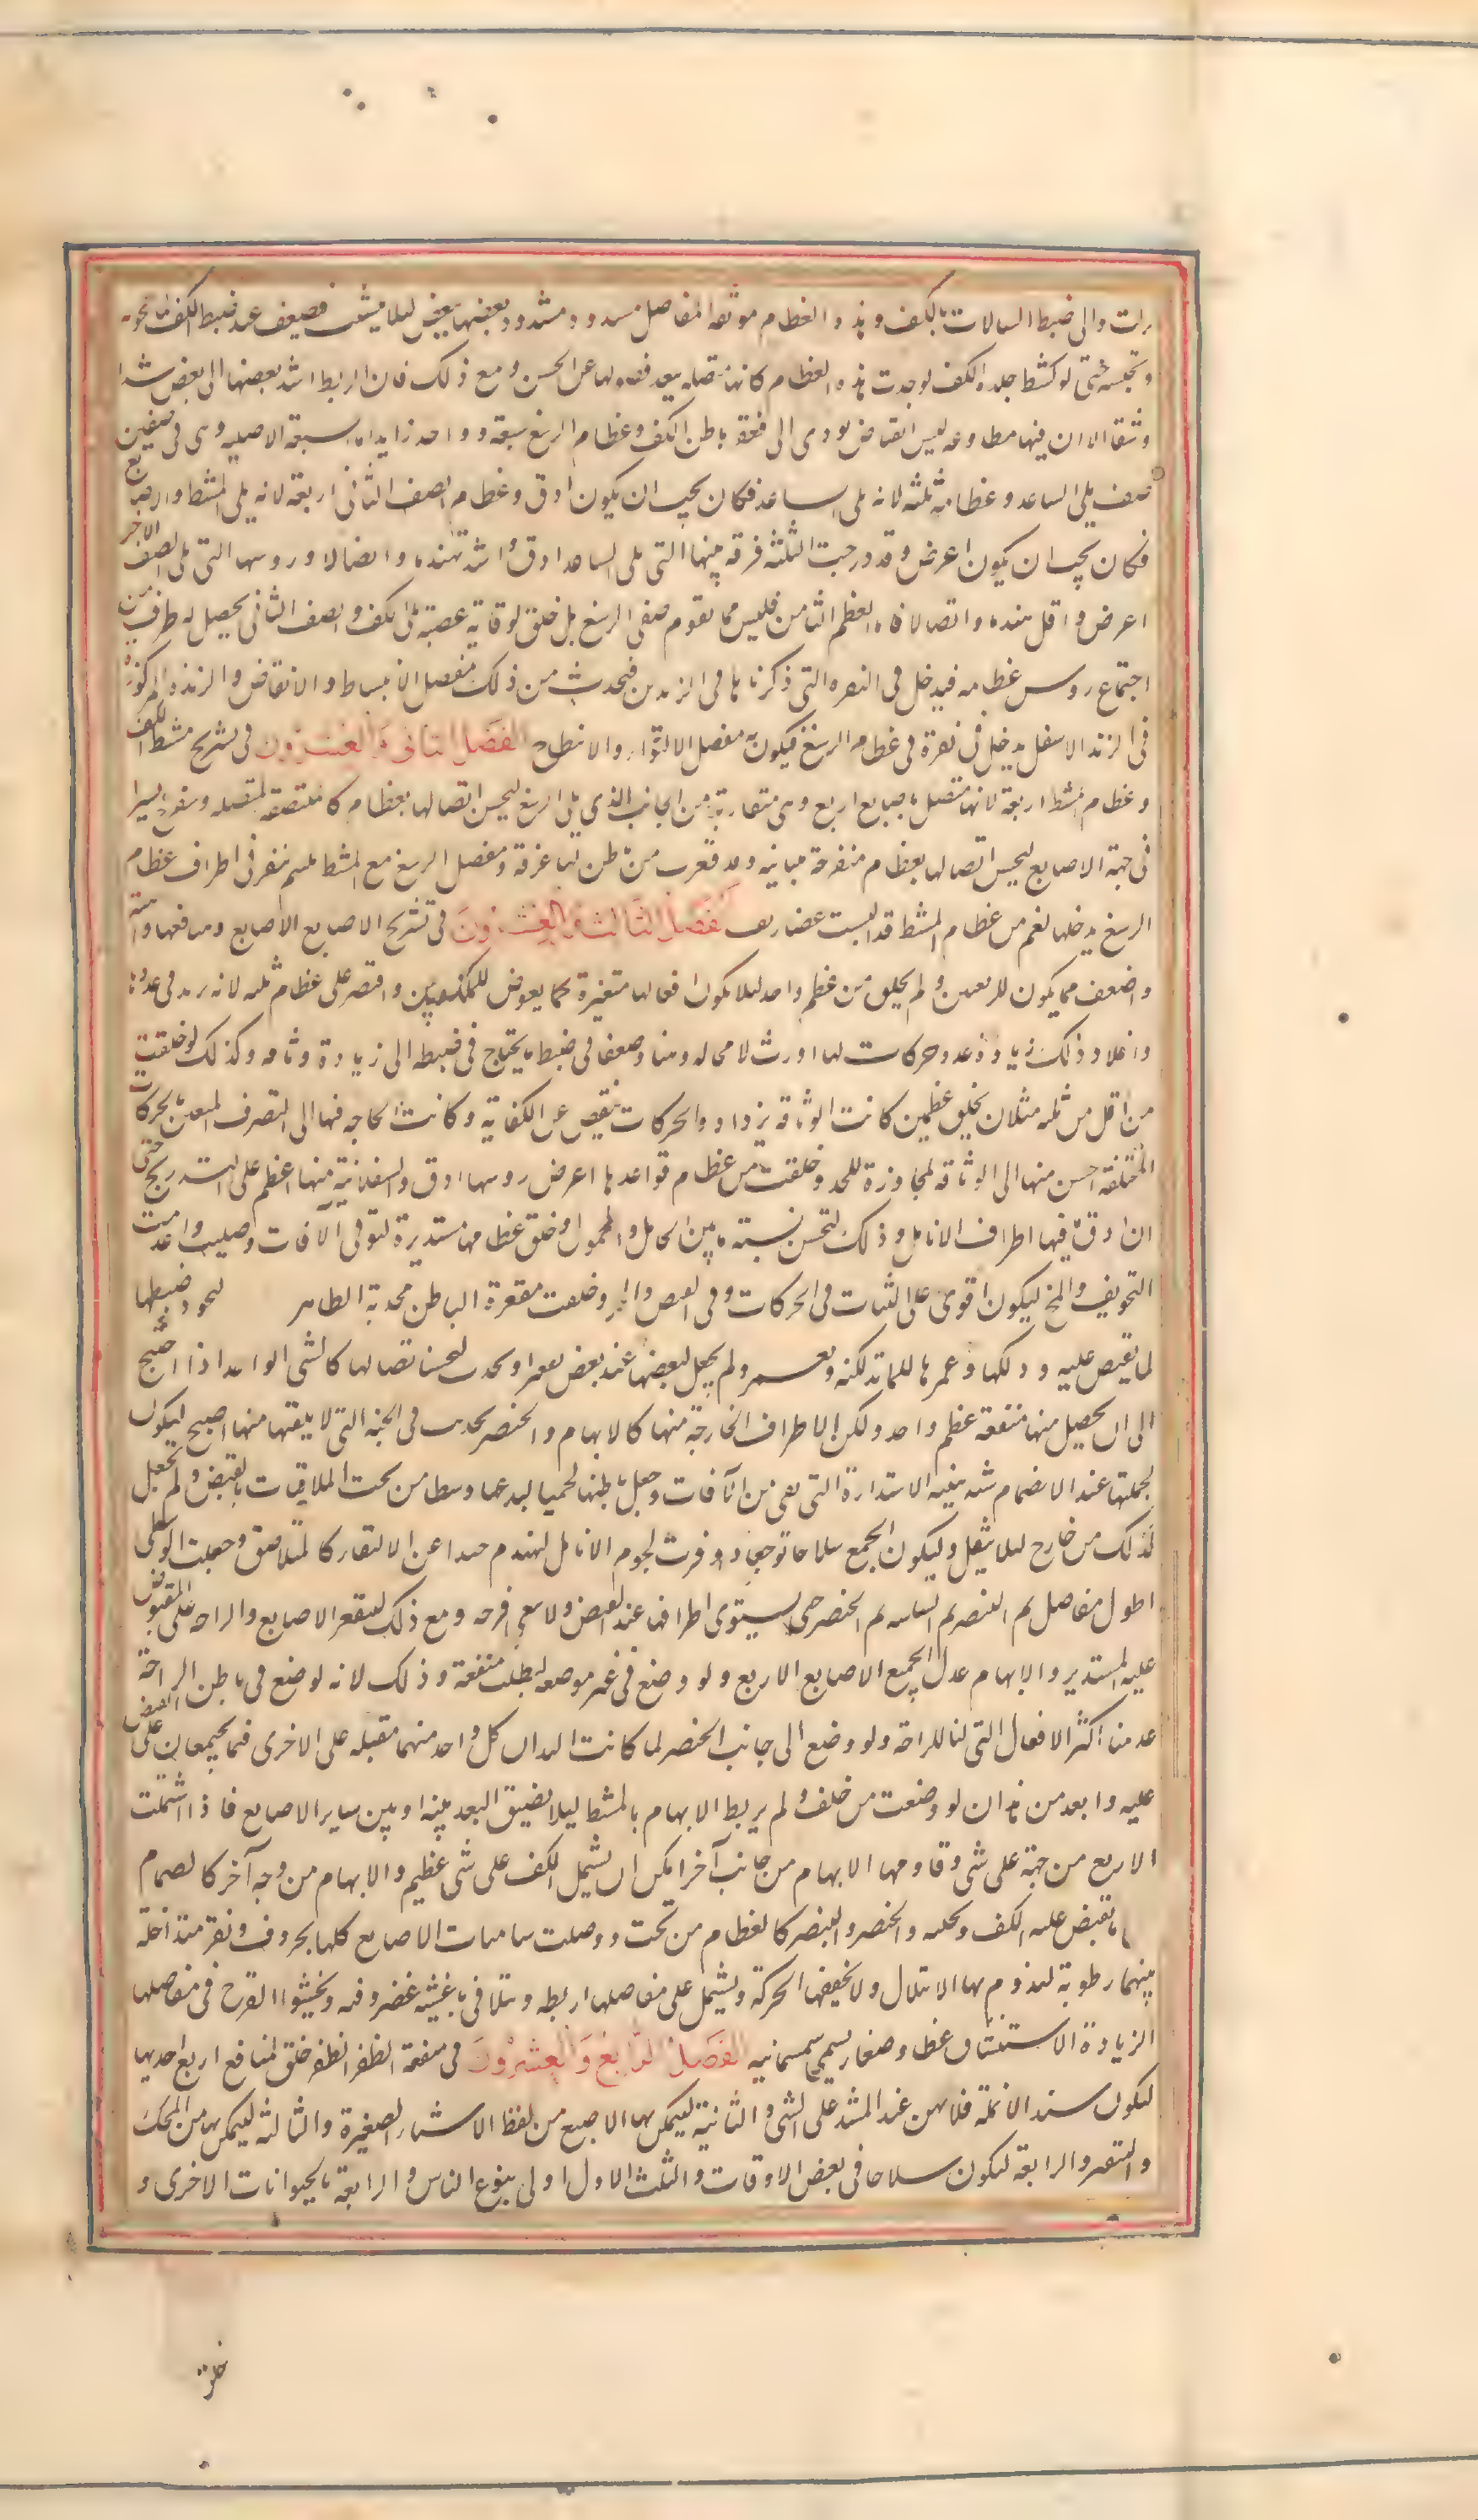 والى ضبط السيالات بالكف وهذه العظام موثقة المفاصل مشدود بعضها ببعض ليلا يتشتت فيضعف عند ضبط الكف لما يحويه
وتحبسه حتى لو كشط جلدة الكف لوجدت هذه العظام كانها متصلة يبعد فصولها عن الحس ومع ذلك فان الربط اشد بعضها الى بعض شدا
وثيقا الا ان فيها مطاوعة ليسير انقباض يودى الى تقعير باطن الكف وعظام الرسغ سبعة وواحد زايد اما السبعة الاصلية وهى فى صفين
صف يلى الساعد وعظامه ثلثة لانه يلى الساعد فكان يجب ان يكون ادق وعظام الصف الثانى اربعة لانه يلى المشط والاصابع
فكان يجب ان يكون اعرض وقد درجت الثلثة فرؤسها التى يلى الساعد ادق واشد تهندما واتصالا وروسها التى يلى الصف الاخر
اعرض واقل تهندما واتصالا واما العظم الثامن فليس مما يقوم صفى الرسغ بل خلق لوقاية عصبة يلى الكف والصف الثلثى يحصل له طرف من
اجتماع روس عظامه فيدخل فى النقرة التى ذكرناها فى الزندين فيحدث من ذلك مفصل الانبساط والانقباض والزايدة المذكورة
فى الزند الاسفل يدخل فى نقرة فى عظام الرسغ فيكون به مفصل الالتواء والانبطاح الفصل الثانى والعشرون فى تشريح مشط الكف
وعظام المشط اربعة لانها متصل باصابع اربع وهى متقاربة من الجانب الذى يلى الرسغ ليحسن اتصالها بعظام كالملتصقة المتصلة ويتفرج يسيرا
فى جهة الاصابع ليحسن اتصالها بعظام منفرجة متباينة وقد قعرت من باطن لما عرفته ومفصل الرسغ مع المشط يلتيم بنقر فى اطراف عظام
الرسغ يدخلها لقم من عظام المشط قد البست غضاريف الفصل الثالث والعشرون فى تشريح الاصابع الاصابع ومنافعها
واضعف مما يكون للمرتعشين ولم يخلق من عظم واحد ليلا يكون افعالها متعسرة كما يعرض للمكزوزين واقتصر على عظام ثلثة لانه ان زيد فى عددها
وافاد ذلك زيادة عدد حركات لها اورث لا محالة وهنا وضعفا فى ضبط ما يحتاج فى ضبطه الى زيادة وثاقة وكذلك لو خلقت
من اقل من ثلثة مثلا ان يخلق من عظمين كانت الوثاقة يزداد والحركات ينقص عن الكفاية وكانت الحاجة فيها الى التصرف المتعين بالحركات
المختلفة احسن منها الى الوثاقة المجاوزة للحد وخلقت من عظام قواعدها اعرض وروسها ادق والسفلانية منها اعظم على التدريج حتى
ان ادق ما فيها اطراف الانامل وذلك لتحسن نسبة ما بين الحامل والمحمول وخلق عظامها مستديرة لتوقى الآفات وصلبت واعدمت
التجويف والمخ ليكون اقوى على الثبات فى الحركات وفى القبض والجر وخلقت مقعرة الباطن محدبة الظاهر ليجود ضبطها
لما يقبض عليه ودلكها وغمزها لما تدلكه وتغمزه ولم يجعل لبعضها عند بعض تقعير او تحديب لتحسن اتصالها كالشى الواحد اذا احتيج
الى ان يحصل منها منفعة عظم واحد ولكن الاطراف الخارجة منها كالابهام والخنصر تحديب فى الجنبة التى لا يلقيها منها اصبع ليكون
لجملتها عند الانضمام شبه هيئة الاستدارة التى يقى من الآفات وجعل باطنها لحميا ليدعمها ويتطامن تحت الملاقيات بالقبض ولم يجعل
كذلك من خارج ليلا يثقل وليكون الجميع سلاحا موجعا ووفرت لحوم الانامل لتهندم جيدا عند الالتقاء كالمتلاصق وجعلت الوسطى
اطول مفاصل ثم البنصر ثم السبابة ثم الخنصر حتى يستوى اطرافها عند القبض ولا يبقى فرجة ومع ذلك ليتقعر الاصابع والراحة على المقبوض
عليه المستدير والابهام عدل لجميع الاصابع الاربع ولو وضع فى غير موضعه لبطلت منفعته وذلك لانه لو وضع فى باطن الراحة
عدمنا اكثر الافعال التى لنا بالراحة ولو وضع الى جانب الخنصر لما كانت اليدان كل واحد منهما مقبلة على الاخرى فيما يجتمعان على القبض
عليه وابعد من هذا ان لو وضعت من خلف ولم يربط الابهام بالمشط ليلا يضيق البعد بينها وبين ساير الاصابع فاذا اشتملت
الاربع من جهة على شى وقاومها الابهام من جانب آخر امكن ان يشمل الكف على شى عظيم والابهام من وجه آخر كالصمام
على ما يقبض عليه الكف ويخفيه والخنصر والبنصر كالغطاء من تحت ووصلت سلاميات الاصابع كلها بحروف ونقر متداخلة
بينهما رطوبة لزجة يدوم بها الابتلال ولا يجففها الحركة ويشتمل على مفاصلها اربطة ويتلاقى باغشية غضروفية ويحشوا الفرج فى مفاصلها
لزيادة الاستيثاق عظام صغار يسمى سمسمانية الفصل الرابع والعشرون فى منفعة الظفر الظفر خلق لمنافع اربع احديها
ليكون سند الانملة فلا يهن عند الشد على الشى والثانية ليتمكن بها الاصبع من لقط الاشياء الصغيرة والثالثة ليتمكن بها من الحك
والتنقية والرابعة ليكون سلاحا فى بعض الاوقات والثلث الاول اولى بنوع الناس والرابعة بالحيوانات الاخرى و
خلق